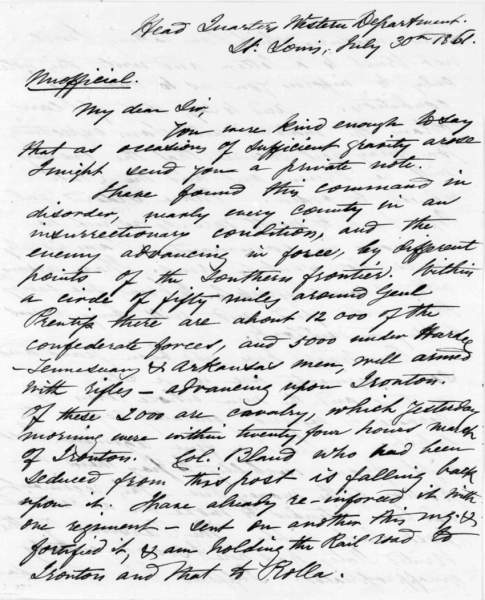 Head Quarters Western Department.
St. Louis, July 30th 1861.
Unofficial.
My dear Sir,
You were kind enough to say
that as occasions of sufficient gravity arose
I might send you a private note.
I have found this command in
disorder, nearly every county in an
insurrectionary condition, and the
enemy advancing in force, by different
points of the Southern frontier. Within
a circle of fifty miles around Genl
Prentiss there are about 12 000 of the
confederate forces, and 5000 under Hardee
- Tennessean & Arkansas men, well armed
with rifles - advancing upon Ironton.
Of these 2000 are cavalry, which yesterday
morning were within twenty four hours march
of Ironton. Col. Bland who had been
seduced from this post is falling back
upon it. I have already re-inforced it with
one regiment - sent on another this mg. &
fortified it, & am holding the Rail road to
Ironton and that to Rolla.